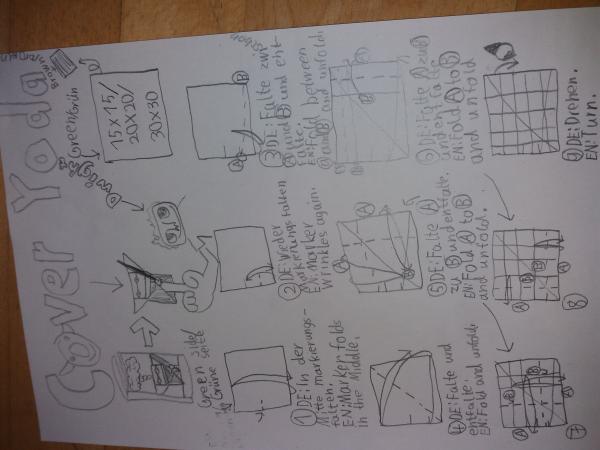 Cover Yoda
Green/Grün
15x15/
20x20/
30x30
Green side/
Grüne seite
① DE: In der
Mitte markierungs-
falten.
EN: Marker folds
in the Middle.
② DE: Wieder
Markierungsfalten
EN: Marker
Wrinkles again.
A
B
③ DE: Falte zwi
A und B und ent
falte.
EN: Fold between
A and B and unfold.
④ DE: Falte und
entfalte.
EN: Fold and unfold.
A
B
⑤ DE: Falte A
zu B und entfalte.
EN: Fold A to B
and unfold.
A
B
B
⑥ DE: Falte A zu B
und entfalte
EN: Fold A to B
and unfold
A
B
B
A
⑦
A
B
B
A
⑧
⑨ DE: Drehen.
EN: Turn.